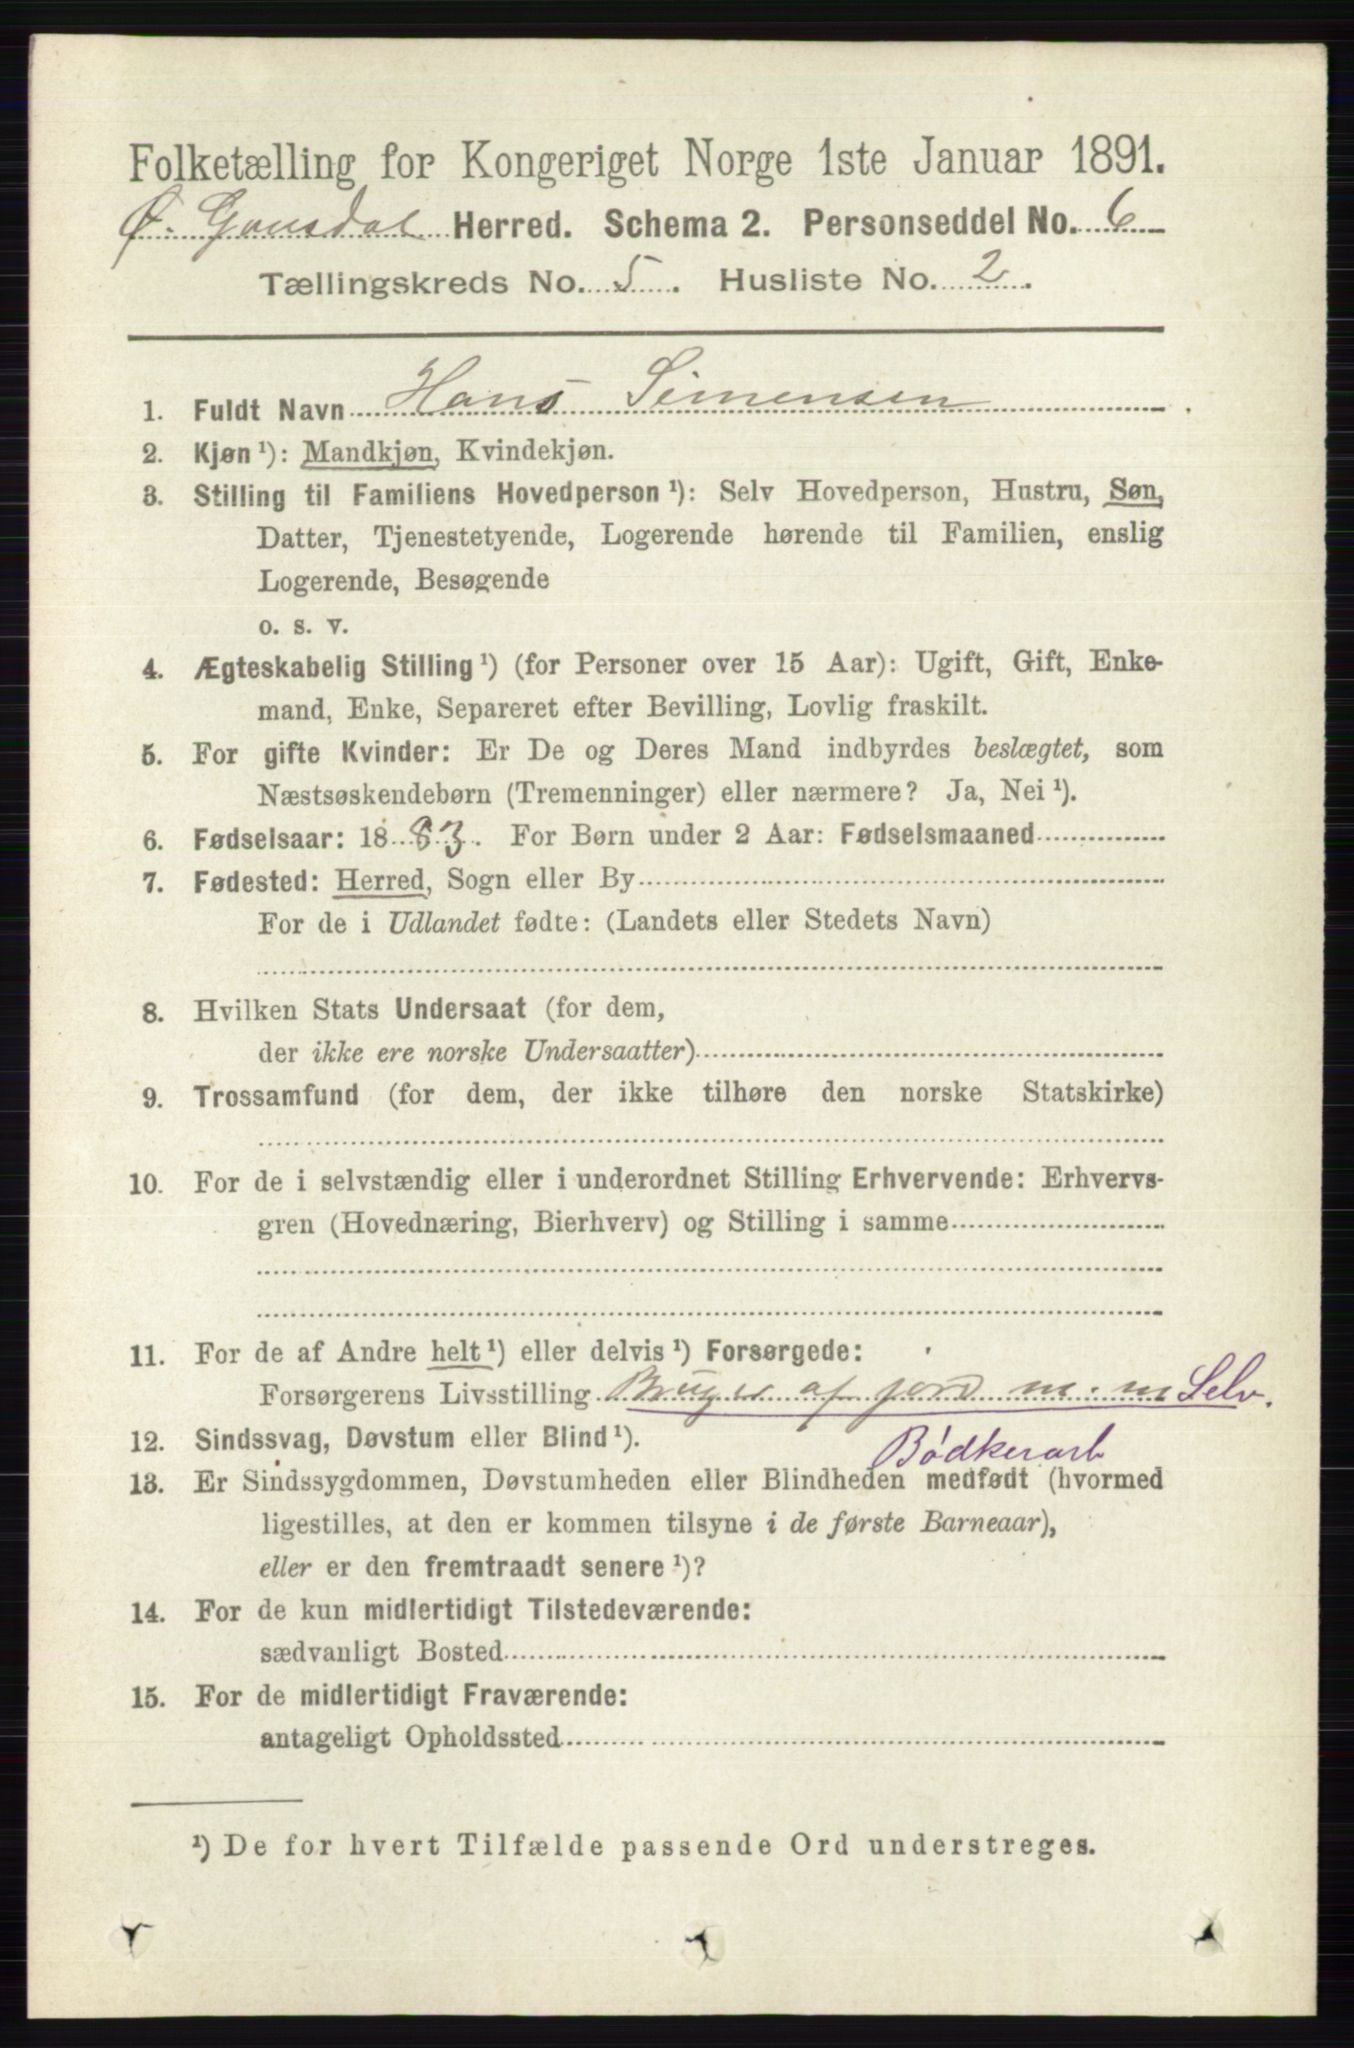 Folketælling for Kongeriget Norge 1ste Januar 1891.
Ø. Gausdal Herred. Schema 2. Personseddel No. 6
Tællingskreds No. 5. Husliste No. 2.
1. Fuldt Navn Hans Simensen
2. Kjøn ¹): Mandkjøn, Kvindekjøn.
3. Stilling til Familiens Hovedperson ¹): Selv Hovedperson, Hustru, Søn,
Datter, Tjenestetyende, Logerende hørende til Familien, enslig
Logerende, Besøgende
o. s. v.
4. Ægteskabelig Stilling ¹) (for Personer over 15 Aar): Ugift, Gift, Enke-
mand, Enke, Separeret efter Bevilling, Lovlig fraskilt.
5. For gifte Kvinder: Er De og Deres Mand indbyrdes beslægtet, som
Næstsøskendebørn (Tremenninger) eller nærmere? Ja, Nei ¹).
6. Fødselsaar: 1883. For Børn under 2 Aar: Fødselsmaaned
7. Fødested: Herred, Sogn eller By
For de i Udlandet fødte: (Landets eller Stedets Navn)
8. Hvilken Stats Undersaat (for dem,
der ikke ere norske Undersaatter)
9. Trossamfund (for dem, der ikke tilhøre den norske Statskirke)
10. For de i selvstændig eller i underordnet Stilling Erhvervende: Erhvervs-
gren (Hovednæring, Bierhverv) og Stilling i samme
11. For de af Andre helt ¹) eller delvis ¹) Forsørgede:
Forsørgerens Livsstilling Bruger af jord m. m Selv.
12. Sindssvag, Døvstum eller Blind ¹). Bødkerarb
13. Er Sindssygdommen, Døvstumheden eller Blindheden medfødt (hvormed
ligestilles, at den er kommen tilsyne i de første Barneaar),
eller er den fremtraadt senere ¹)?
14. For de kun midlertidigt Tilstedeværende:
sædvanligt Bosted
15. For de midlertidigt Fraværende:
antageligt Opholdssted
¹) De for hvert Tilfælde passende Ord understreges.